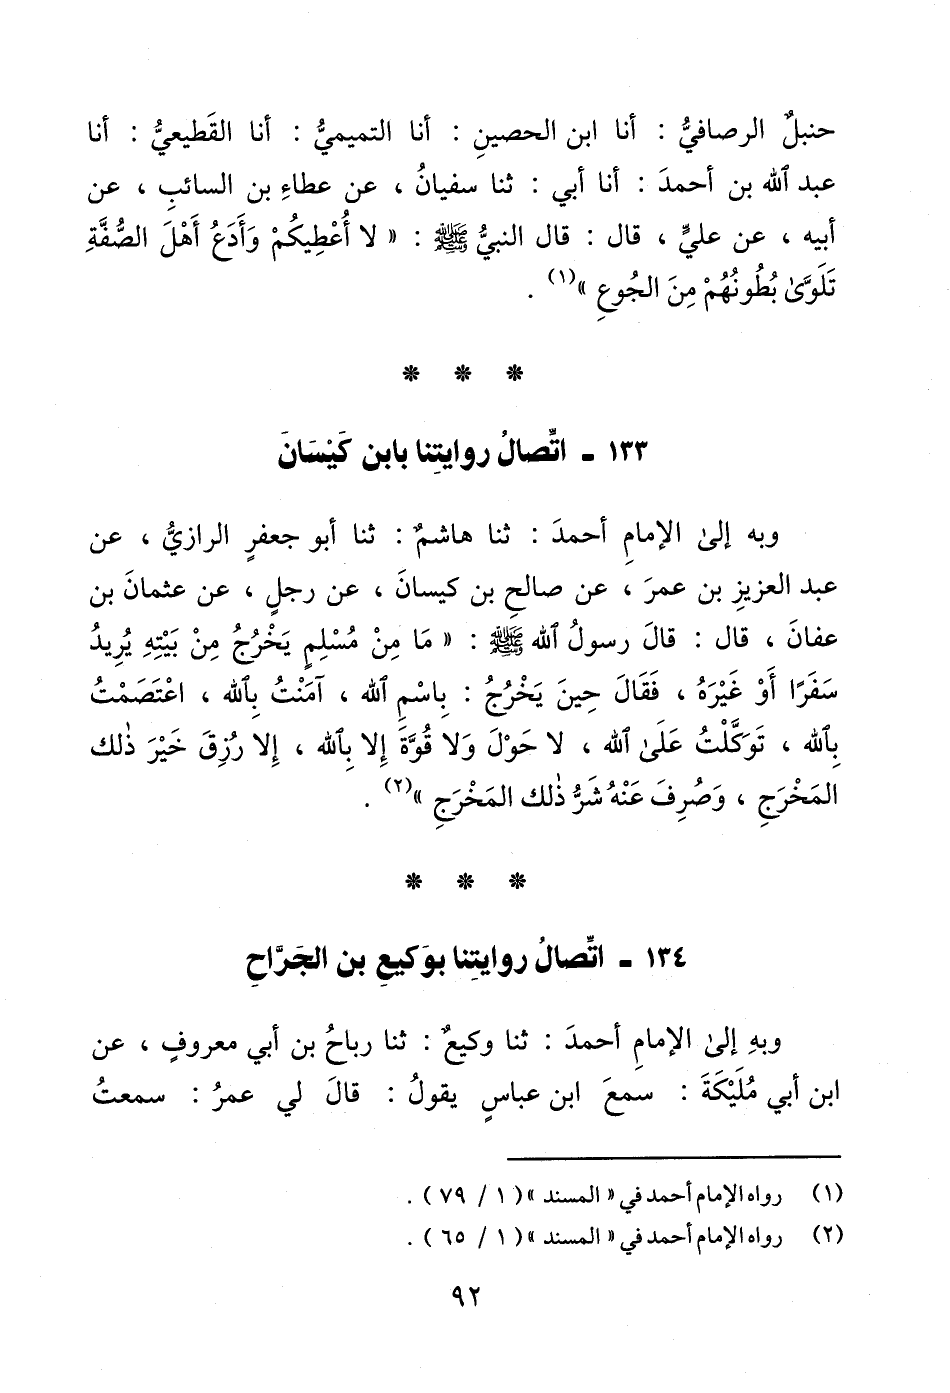 حنبلٌ الرصافيُّ : أنا ابن الحصينِ : أنا التميميُّ : أنا القَطيعيُّ : أنا
عبد ٱلله بن أحمدَ : أنا أبي : ثنا سفيانُ ، عن عطاءِ بن السائبِ ، عن
أبيه ، عن عليٍّ ، قال : قال النبيُّ ﷺ : « لا أُعْطِيكُمْ وَأَدَعُ أَهْلَ الصُّفَّةِ
تَلَوَّىٰ بُطُونُهُمْ مِنَ الجُوعِ »(١) .
* * *
١٣٣ ـ اتِّصالُ روايتِنا بابن كَيْسَانَ
وبه إلىٰ الإمامِ أحمدَ : ثنا هاشمٌ : ثنا أبو جعفرٍ الرازيُّ ، عن
عبد العزيزِ بن عمرَ ، عن صالحِ بن كيسانَ ، عن رجلٍ ، عن عثمانَ بن
عفانَ ، قال : قالَ رسولُ ٱلله ﷺ : « مَا مِنْ مُسْلِمٍ يَخْرُجُ مِنْ بَيْتِهِ يُرِيدُ
سَفَرًا أَوْ غَيْرَهُ ، فَقَالَ حِينَ يَخْرُجُ : بِاسْمِ ٱلله ، آمَنْتُ بِٱلله ، اعْتَصَمْتُ
بِٱلله ، تَوَكَّلْتُ عَلَىٰ ٱلله ، لا حَوْلَ وَلا قُوَّةَ إِلا بِٱلله ، إِلا رُزِقَ خَيْرَ ذٰلك
المَخْرَجِ ، وَصُرِفَ عَنْهُ شَرُّ ذٰلك المَخْرَجِ »(٢) .
* * *
١٣٤ ـ اتِّصالُ روايتِنا بوَكيعِ بن الجَرَّاحِ
وبهِ إلىٰ الإمامِ أحمدَ : ثنا وكيعٌ : ثنا رباحُ بن أبي معروفٍ ، عن
ابن أبي مُلَيْكَةَ : سمعَ ابن عباسٍ يقولُ : قالَ لي عمرُ : سمعتُ
(١) رواه الإمام أحمد في « المسند » ( ١ / ٧٩ ) .
(٢) رواه الإمام أحمد في « المسند » ( ١ / ٦٥ ) .
٩٢